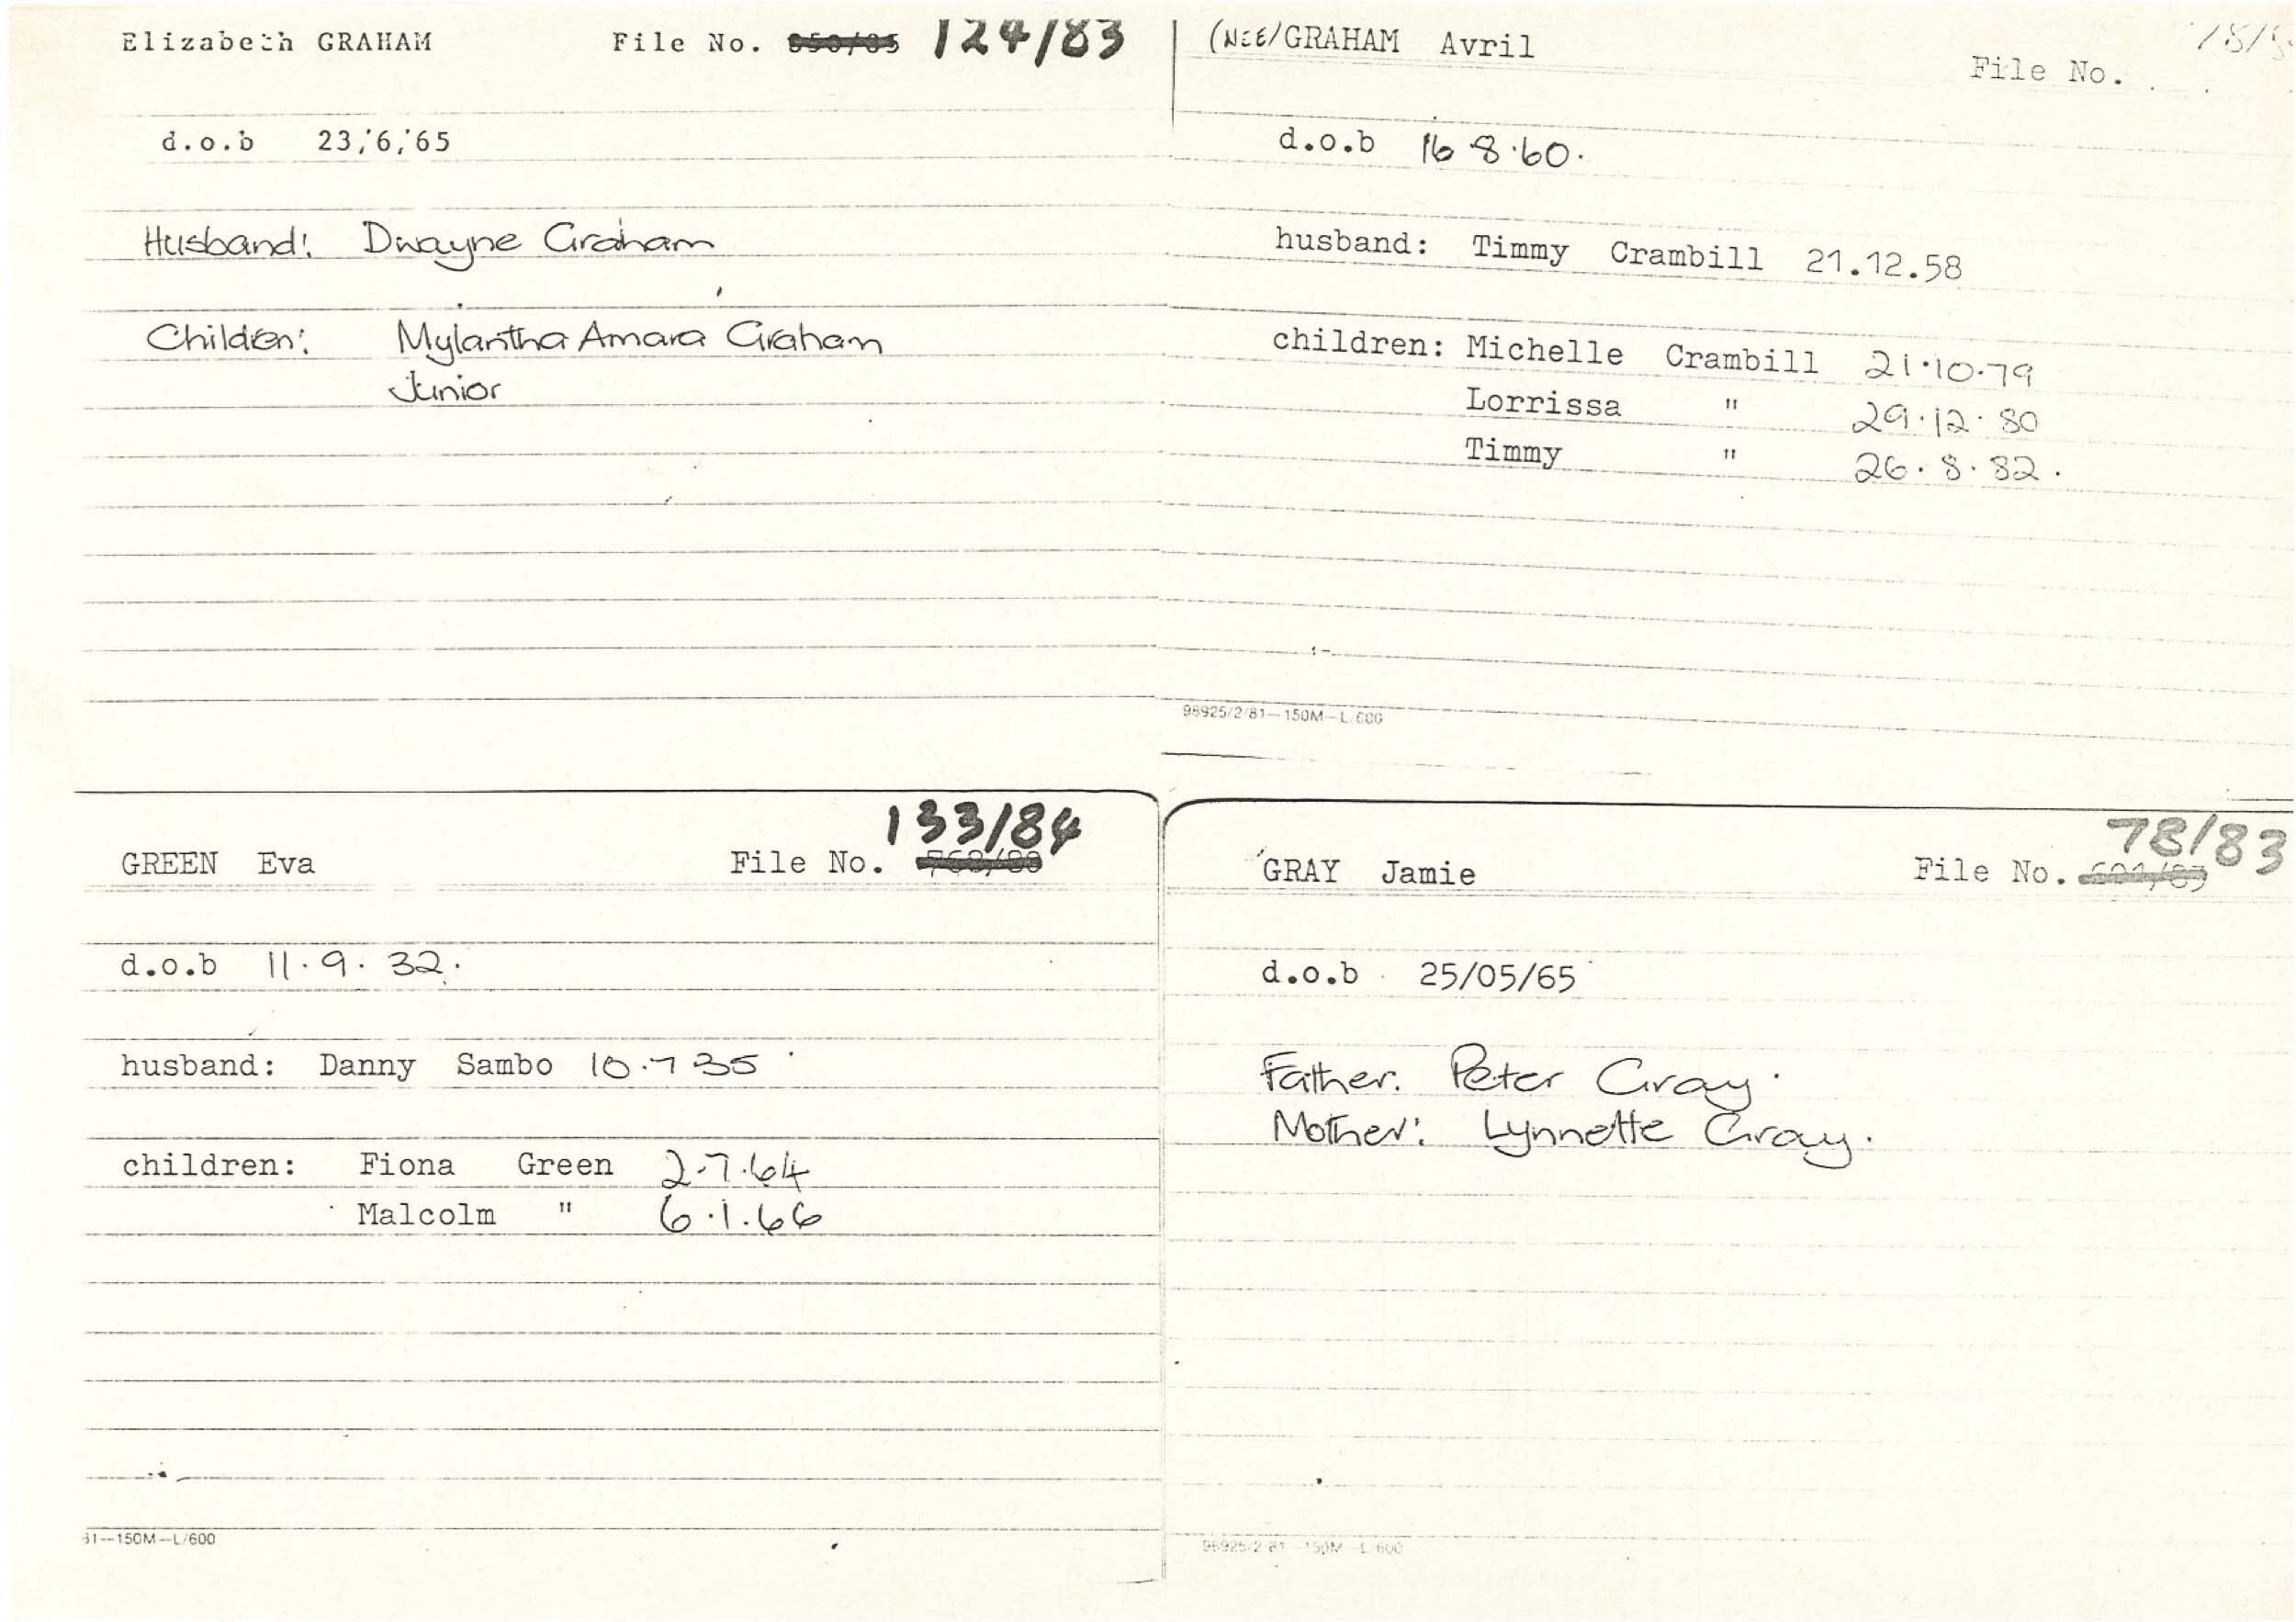 Elizabeth GRAHAM File No. 124/83
d.o.b 23,6,65
Husband: Dwayne Graham
Children: Mylantha Amara Graham
Junior
(NEE/GRAHAM Avril
File No.
d.o.b 16.8.60.
husband: Timmy Crambill 21.12.58
children: Michelle Crambill 21.10.79
Lorrissa " 29.12.80
Timmy " 26.8.82.
98925/2/81—150M—L/600
133/84
GREEN Eva File No.
d.o.b 11.9.32.
husband: Danny Sambo 10.7 35
children: Fiona Green 2.7.64
Malcolm " 6.1.66
81—150M—L/600
78/83
GRAY Jamie File No.
d.o.b 25/05/65
Father: Peter Gray.
Mother: Lynnette Gray.
98925/2 81—150M—L/600